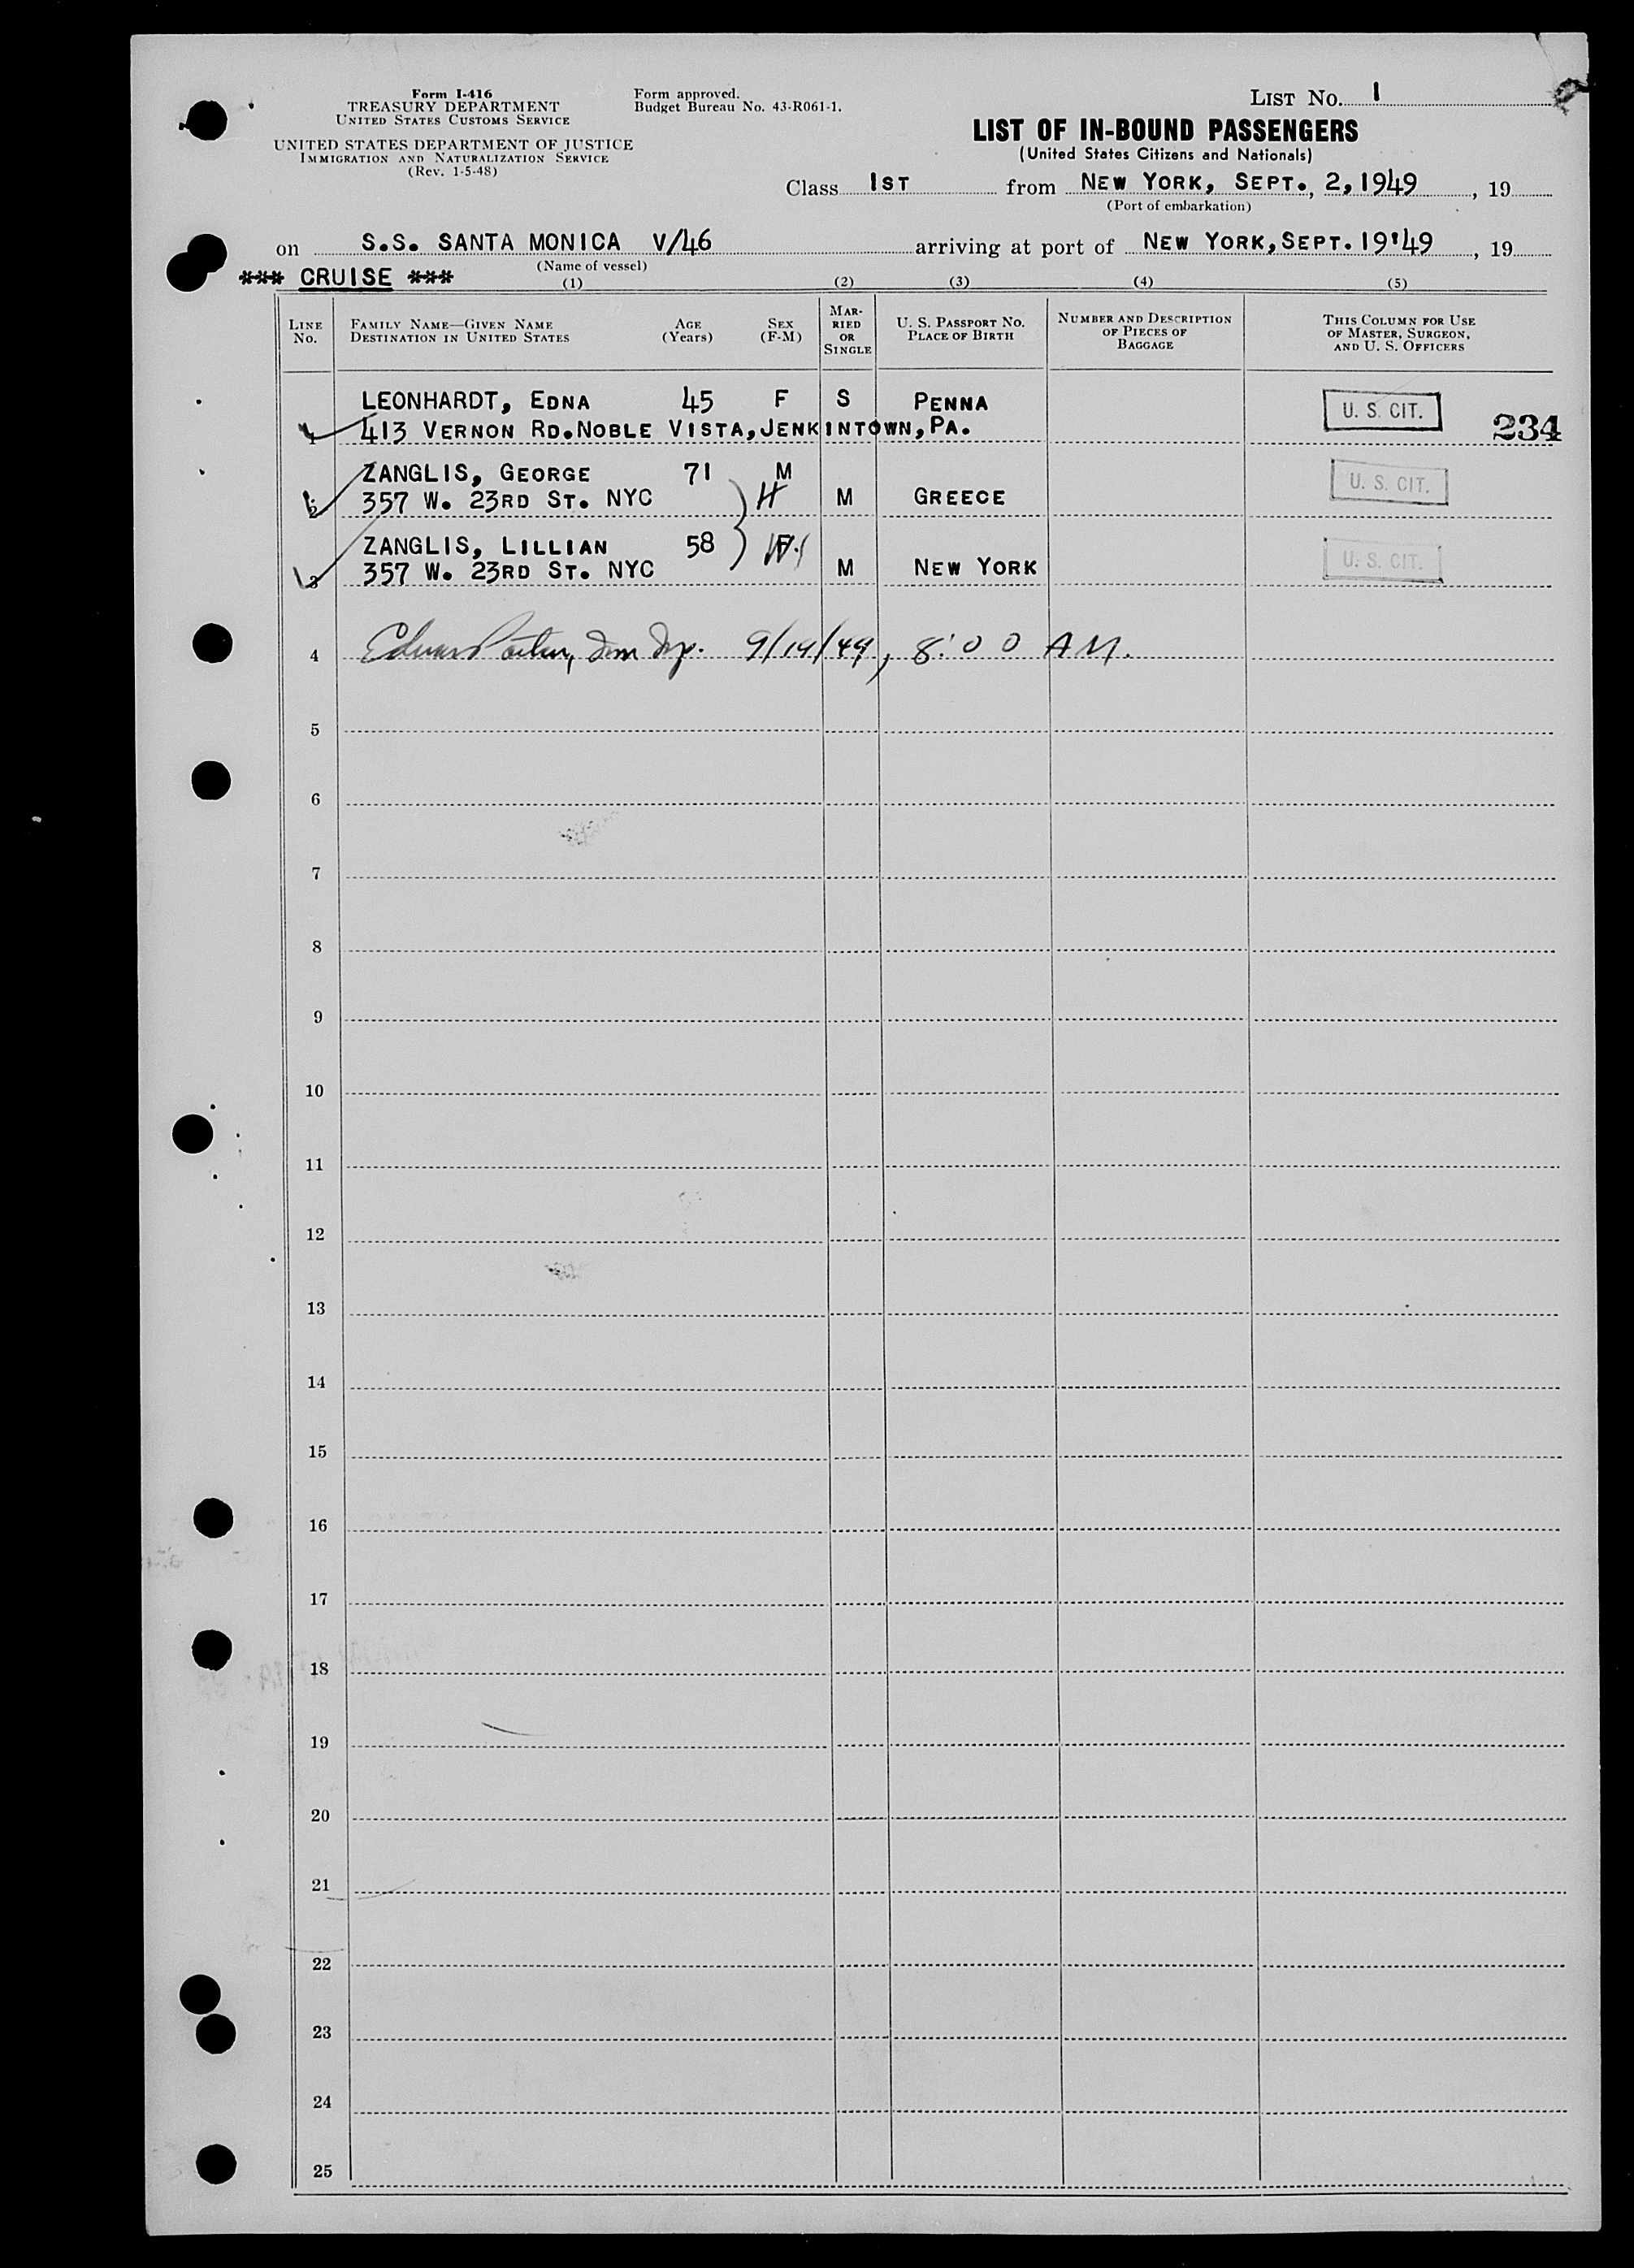 Form I-416
TREASURY DEPARTMENT
UNITED STATES CUSTOMS SERVICE
UNITED STATES DEPARTMENT OF JUSTICE
IMMIGRATION AND NATURALIZATION SERVICE
(Rev. 1-5-48)
Form approved.
Budget Bureau No. 43-R061-1.
LIST NO. 1
LIST OF IN-BOUND PASSENGERS
(United States Citizens and Nationals)
Class 1ST from NEW YORK, SEPT., 2, 1949, 19
(Port of embarkation)
on S.S. SANTA MONICA V/46 arriving at port of NEW YORK, SEPT. 19'49, 19
(Name of vessel)
*** CRUISE ***
(1) (2) (3) (4) (5)
LINE No. FAMILY NAME—GIVEN NAME DESTINATION IN UNITED STATES AGE (Years) SEX (F-M) MARRIED OR SINGLE U. S. PASSPORT NO. PLACE OF BIRTH NUMBER AND DESCRIPTION OF PIECES OF BAGGAGE THIS COLUMN FOR USE OF MASTER, SURGEON, AND U. S. OFFICERS
LEONHARDT, EDNA 45 F S PENNA U. S. CIT.
1 413 VERNON RD. NOBLE VISTA, JENKINTOWN, PA. 234
ZANGLIS, GEORGE 71 M U. S. CIT.
2 357 W. 23RD ST. NYC H M GREECE
ZANGLIS, LILLIAN 58 U. S. CIT.
3 357 W. 23RD ST. NYC M NEW YORK
4 9/19/49, 8:00 AM.
5
6
7
8
9
10
11
12
13
14
15
16
17
18
19
20
21
22
23
24
25